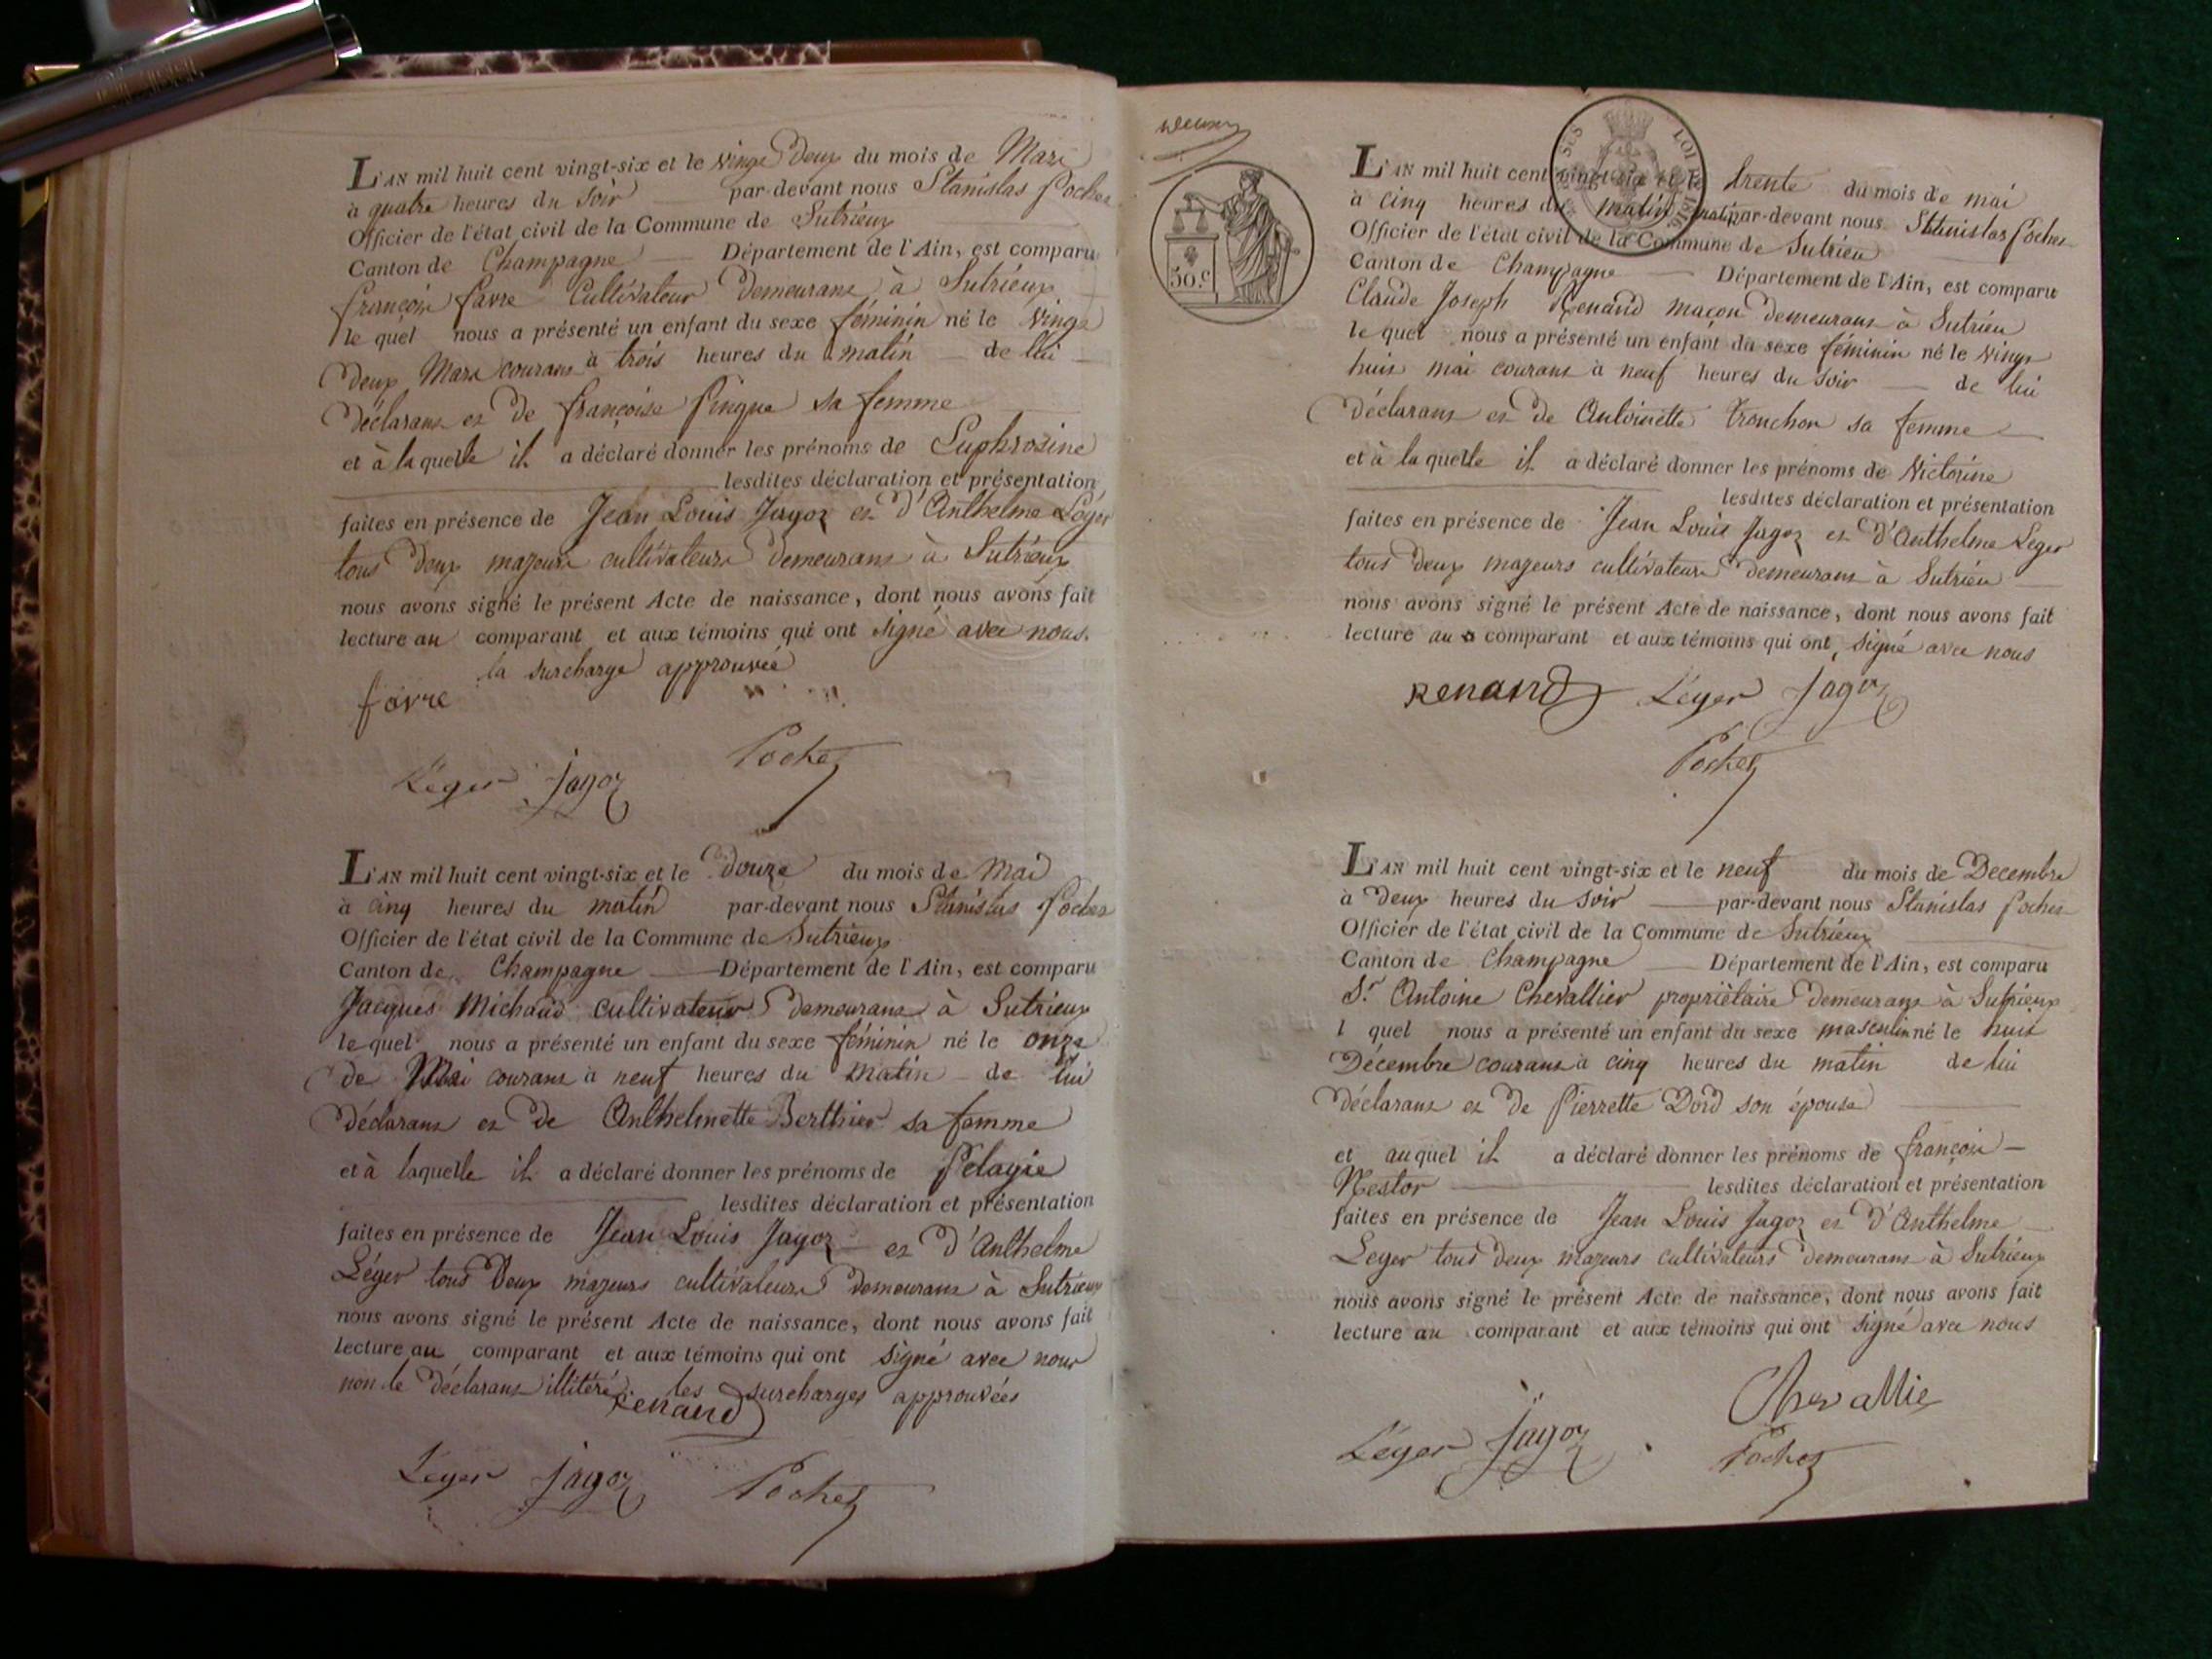 L'AN mil huit cent vingt-six et le vingt deux du mois de Mars
à quatre heures du Soir par-devant nous Stanislas Pochet
Officier de l'état civil de la Commune de Sutrieux
Canton de Champagne Département de l'Ain, est comparu
françois favre Cultivateur demeurant à Sutrieux
le quel nous a présenté un enfant du sexe féminin né le vingt
deux Mars courant à trois heures du matin de lui
déclarant et de françoise Pingue sa femme
et à la quelle il a déclaré donner les prénoms de Euphrosine
lesdites déclaration et présentation
faites en présence de Jean Louis Jagoz et d'Anthelme Léger
tous deux majeurs cultivateurs demeurant à Sutrieux
nous avons signé le présent Acte de naissance, dont nous avons fait
lecture au comparant et aux témoins qui ont signé avec nous.
la surcharge approuvée
favre
Léger Jagoz Pochet
L'AN mil huit cent vingt-six et le douze du mois de Mai
à cinq heures du matin par-devant nous Stanislas Pochet
Officier de l'état civil de la Commune de Sutrieux
Canton de Champagne Département de l'Ain, est comparu
Jacques Michaud cultivateur demeurant à Sutrieux
le quel nous a présenté un enfant du sexe féminin né le onze
de Mai courant à neuf heures du matin de lui
déclarant et de Anthelmette Berthier sa femme
et à laquelle il a déclaré donner les prénoms de Pelagie
lesdites déclaration et présentation
faites en présence de Jean Louis Jagoz et d'Anthelme
Léger tous deux majeurs cultivateurs demeurant à Sutrieux
nous avons signé le présent Acte de naissance, dont nous avons fait
lecture au comparant et aux témoins qui ont signé avec nous
non le déclarant illitéré. les surcharges approuvées
Renand
Léger Jagoz Pochet
50.c
LOI DE 1816
L'AN mil huit cent vingt-six et le trente du mois de mai
à cinq heures du matin par-devant nous Stanislas Pochet
Officier de l'état civil de la Commune de Sutrieu
Canton de Champagne Département de l'Ain, est comparu
Claude Joseph Renand maçon demeurant à Sutrieu
le quel nous a présenté un enfant du sexe féminin né le vingt
huit mai courant à neuf heures du soir de lui
déclarant et de Antoinette Tronchon sa femme
et à la quelle il a déclaré donner les prénoms de Victorine
lesdites déclaration et présentation
faites en présence de Jean Louis Jagoz et d'Anthelme Leger
tous deux majeurs cultivateurs demeurant à Sutrieu
nous avons signé le présent Acte de naissance, dont nous avons fait
lecture au comparant et aux témoins qui ont signé avec nous
Renand Léger Jagoz
Pochet
L'AN mil huit cent vingt-six et le neuf du mois de Decembre
à deux heures du soir par-devant nous Stanislas Pochet
Officier de l'état civil de la Commune de Sutrieux
Canton de Champagne Département de l'Ain, est comparu
S.r Antoine Chevallier propriètaire demeurant à Sutrieux
l quel nous a présenté un enfant du sexe masculin né le huit
Décembre courant à cinq heures du matin de lui
déclarant et de Pierrette Dord son épouse
et auquel il a déclaré donner les prénoms de françois
Nestor lesdites déclaration et présentation
faites en présence de Jean Louis Jagoz et d'Anthelme
Leger tous deux majeurs cultivateurs demeurant à Sutrieux
nous avons signé le présent Acte de naissance, dont nous avons fait
lecture au comparant et aux témoins qui ont signé avec nous
Chevallie
Léger Jagoz Pochet